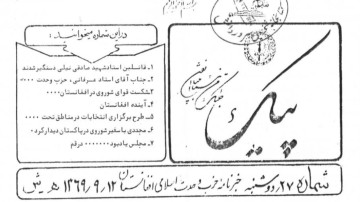 در این شماره میخوانید:
۱ـ قاتلین استاد شهید صادقی نیلی دستگیر شدند
۲ـ جناب آقای استاد عرفانی، حزب وحدت ۰۰۰۰
۳ـ شکست قوای شوروی در افغانستان ۰۰۰۰
۴ـ آینده افغانستان
۵ـ طرح برگزاری انتخابات در مناطق تحت ۰۰۰۰
۶ـ مجددی با سفیر شوروی در پاکستان دیدار کرد ؟
۷ـ مجلس یادبود ۰۰۰۰۰۰۰ در قم
پیک
شماره ۲۷ دوشنبه خبرنامه حزب وحدت اسلامی افغانستان ۱۳۶۹٫۹٫۱۲ ه ش